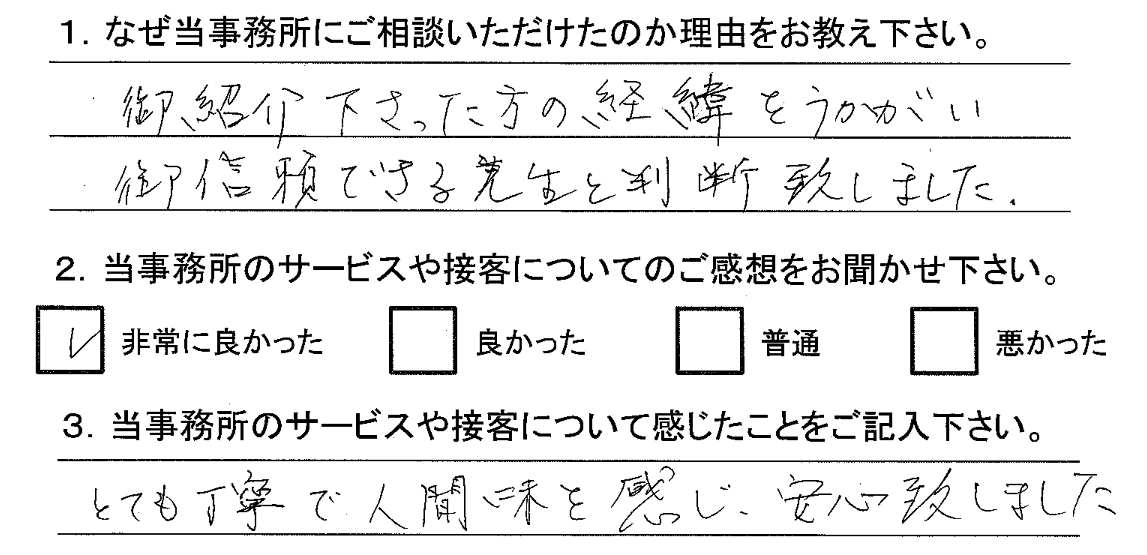 1．なぜ当事務所にご相談いただけたのか理由をお教え下さい。
御紹介下さった方の経緯をうかがい
御信頼できる先生と判断致しました.
2．当事務所のサービスや接客についてのご感想をお聞かせ下さい。
非常に良かった 良かった 普通 悪かった
3．当事務所のサービスや接客について感じたことをご記入下さい。
とても丁寧で人間味を感じ、安心致しました